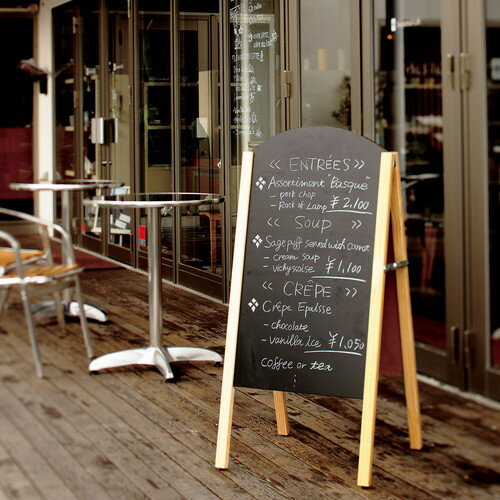 << ENTRÉES >>
Assortiment "Basque"
- pork chop
- Rack of Lamp ¥2,100
<< SOUP >>
Sage piff served with carrot
- cream soup
- vichyssoise ¥1,100
<< CRÊPE >>
Crêpe Epaisse
- chocolate
- vanilla ice ¥1,050
coffee or tea